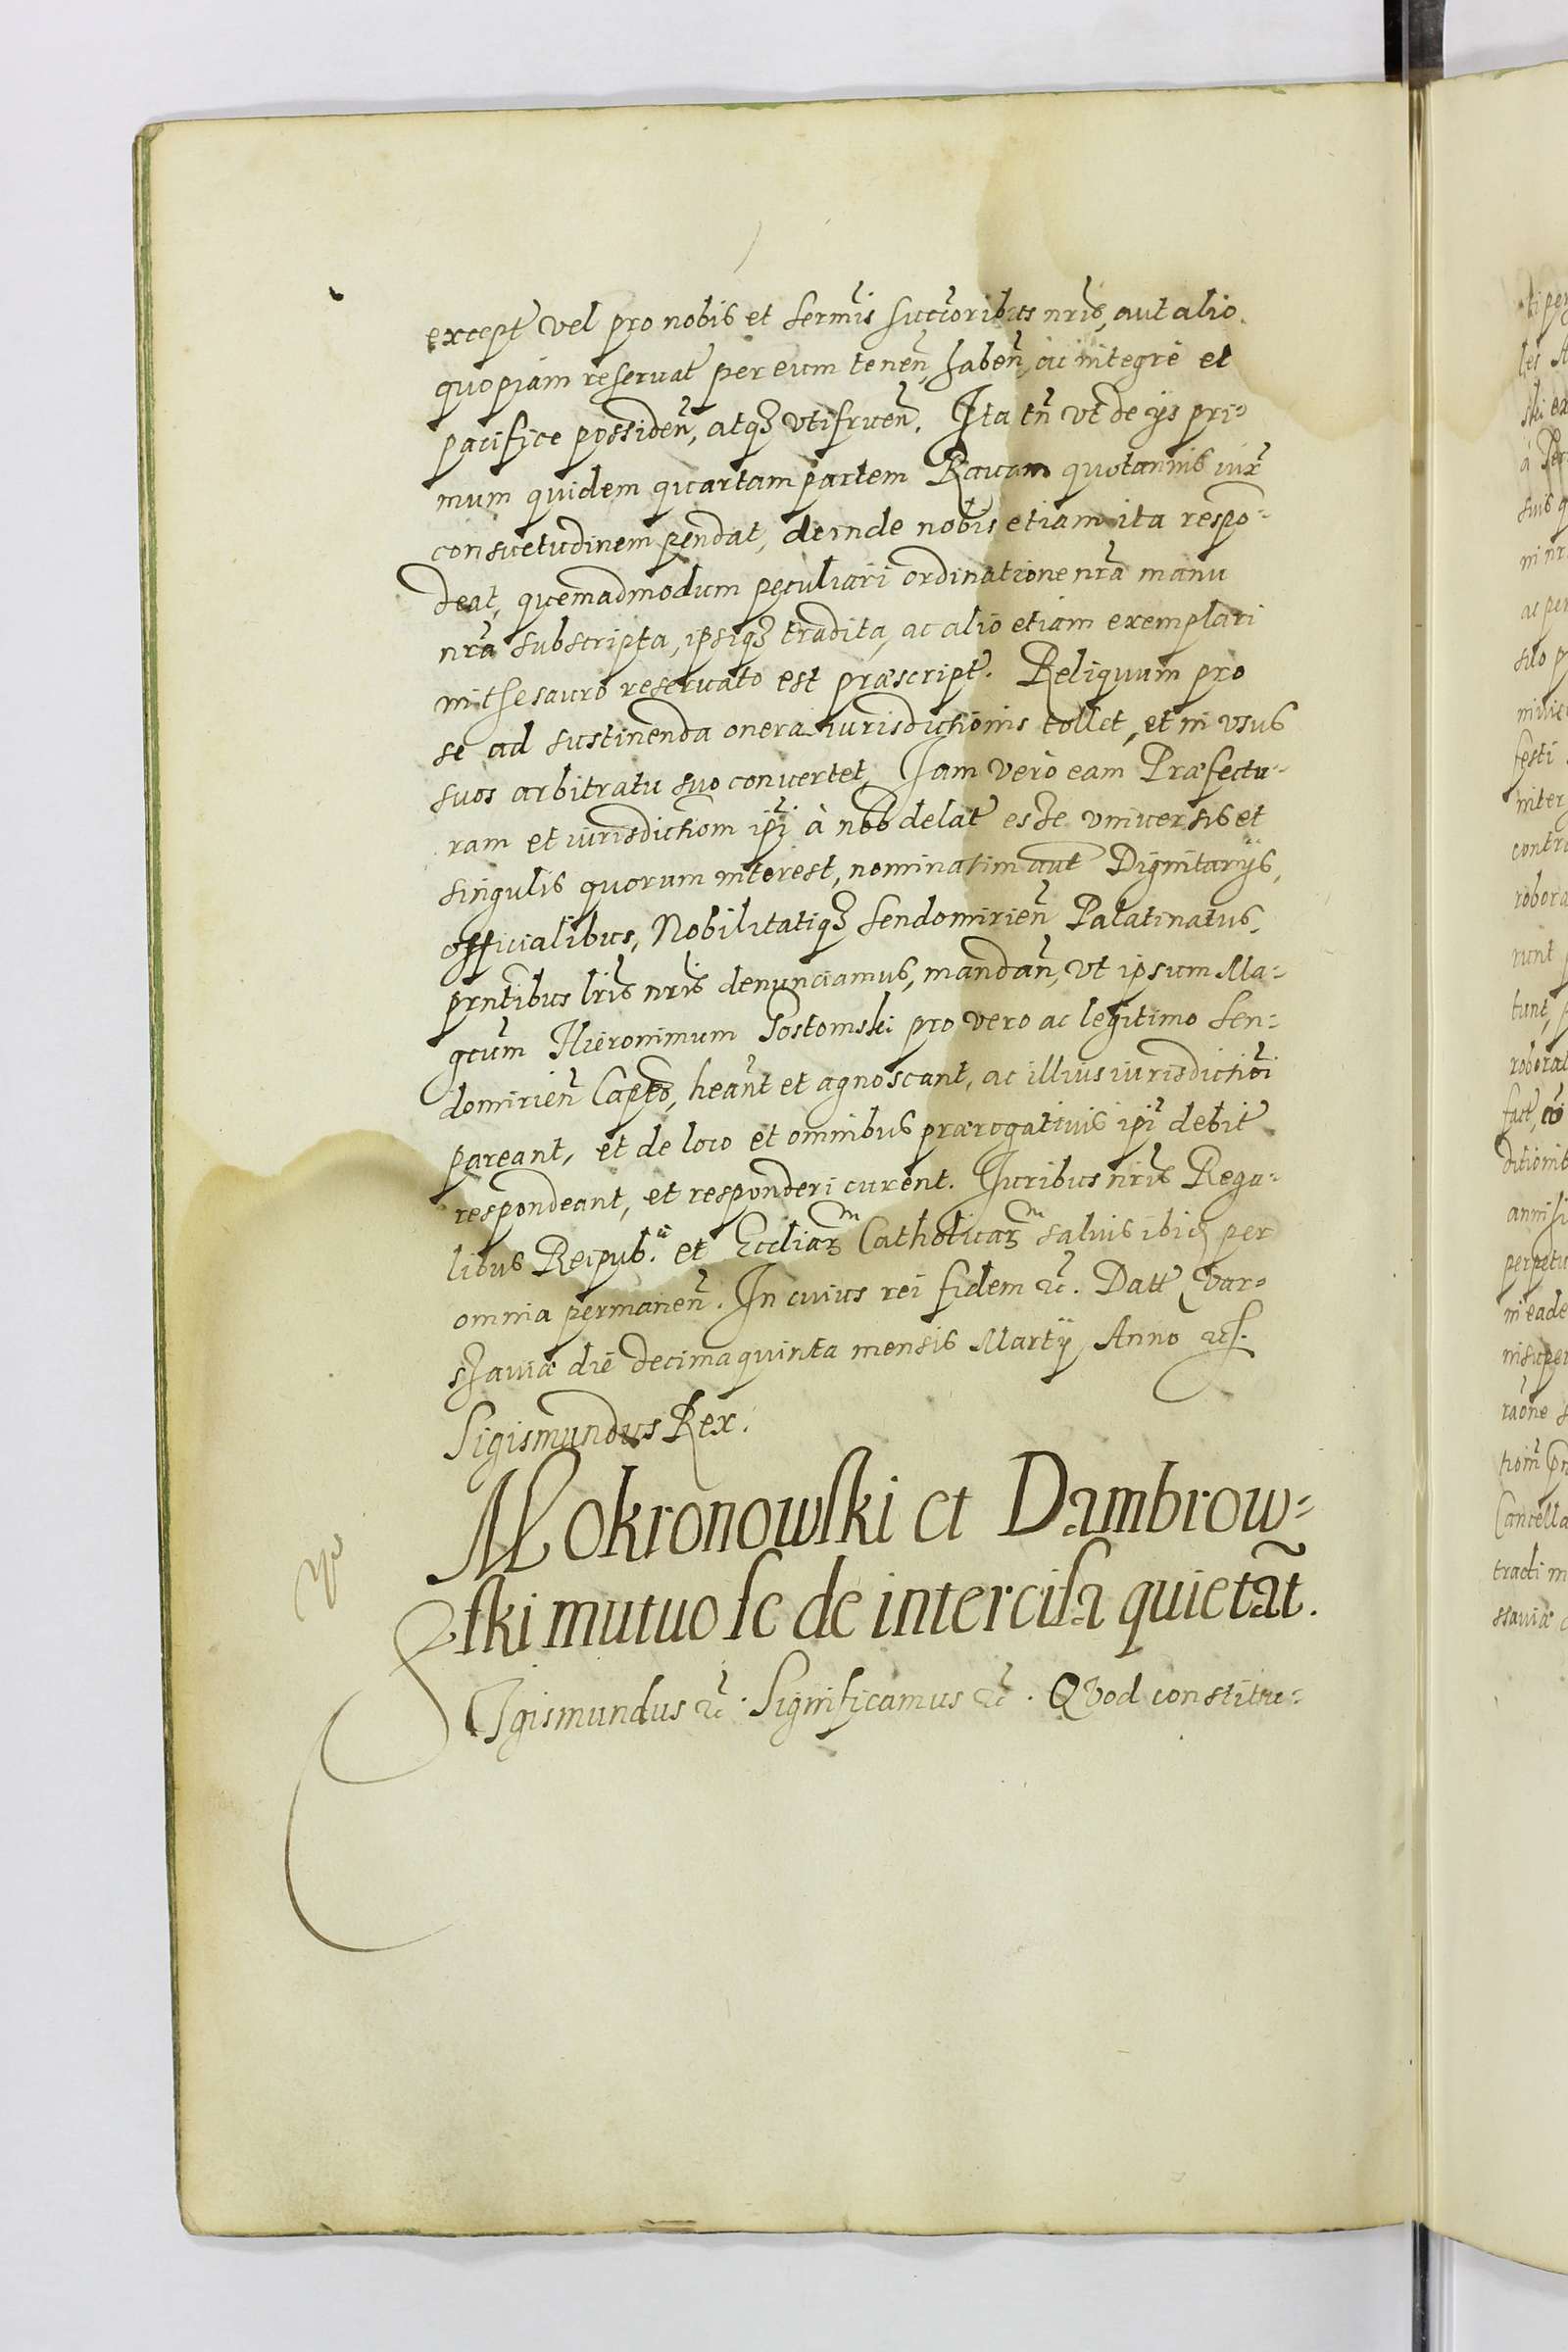 except vel pro nobis et sermis succoribus nris, aut alio
quopiam reservat per eum tenen, haben, ac integrè et
pacifice possiden, atq; utifruen. Ita tn vt de ijs pri=
mum quidem quartam partem Ravam quotannis iux
consuetudinem pendat, deinde nobis etiam ita respo=
deat, quemadmodum peculiari ordinatione nra manu
nra subscripta, ipsiq; tradita, ac alio etiam exemplari
in thesauro reservato est præscript. Reliquum pro
se ad sustinenda onera iurisdictionis tollet, et in vsus
suos arbitratu suo convertet, Iam verò eam Præfectu=
ram et iurisdictiom ipi à nob delat esse vniversis et
singulis quorum interest, nominatim aut Dignitarijs,
officialibus, Nobilitatiq; Sendomirien Palatinatus,
prntibus lris nris denunciamus, mandan, vt ipsum Ma=
gcum Hieronimum Gostomski pro vero ac legitimo Sen=
domirien Capeo, heant et agnoscant, ac illius iurisdictioi
pareant, et de loco et omnibus prærogativis ipi debit
respondeant, et responderi curent. Iuribus nris Rega=
libus Reipub. et Eccliar Catholicar salvis ibid per
omnia permanen. In cuius rei fidem etc. Datt Var=
saviæ die decima quinta mensis Martij Anno ut s.
Sigismundus Rex.
Mokronowski et Dambrow=
ski mutuo se de intercisa quietāt.
Sigismundus etc. Significamus etc. Quod constitu=